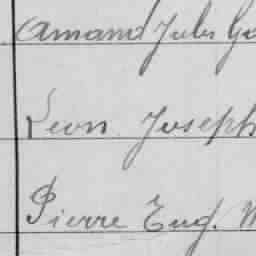 Amand Jules
Leon Joseph
Pierre Eug.